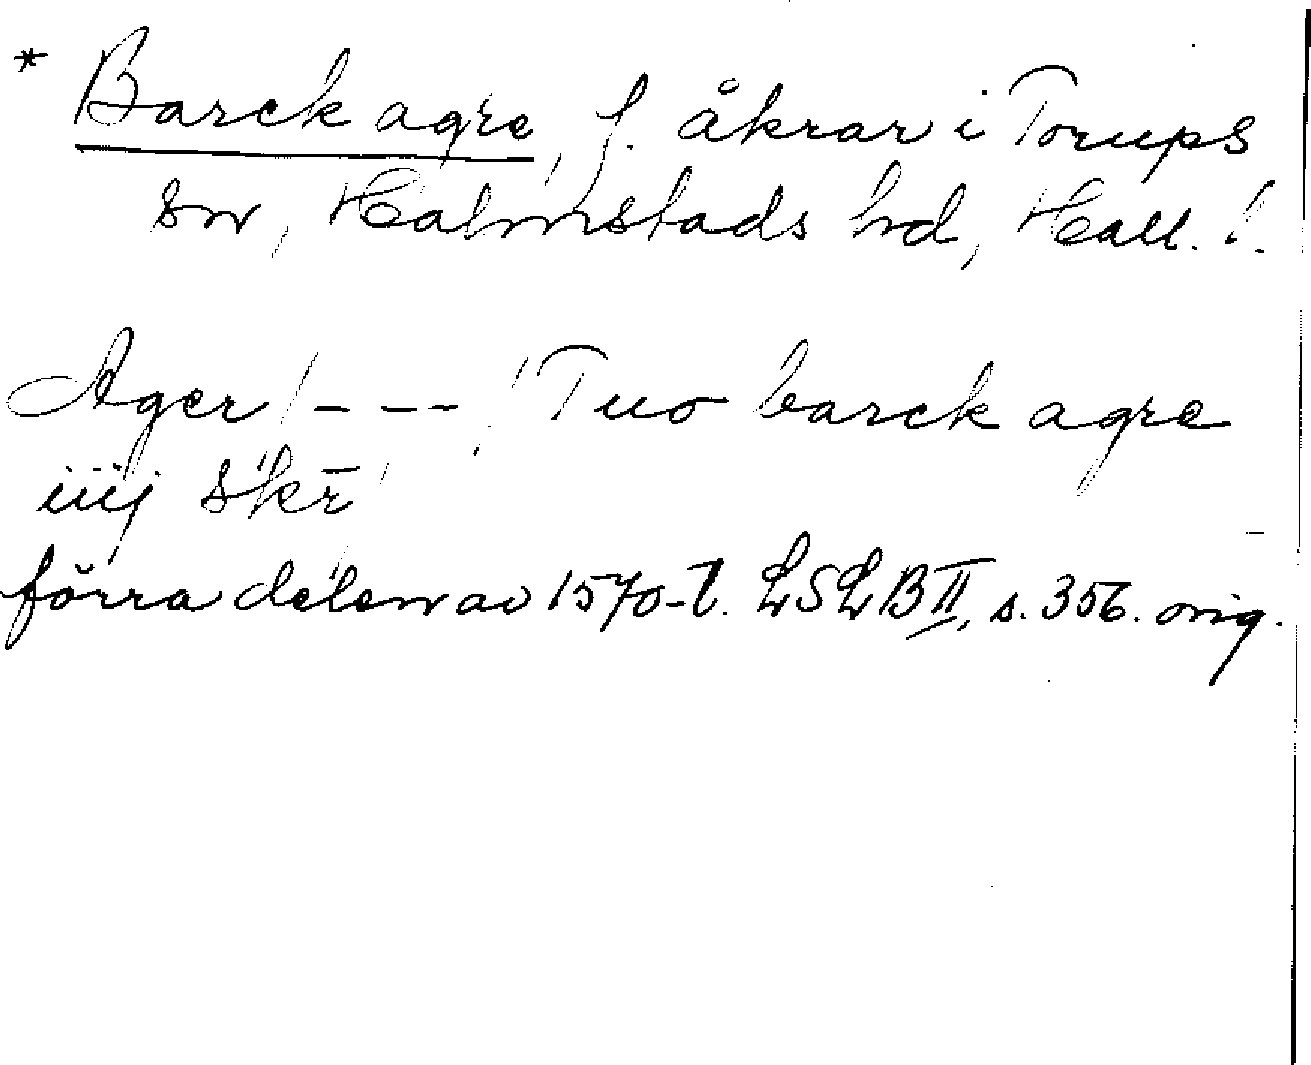 * Barck agre, f. åkrar i Torups
sn, Halmstads hd, Hall. l.
Ager / - - - / Tuo barck agre
iiij skr̄
förra delen av 1570-t. LSLB II, s. 356. orig.